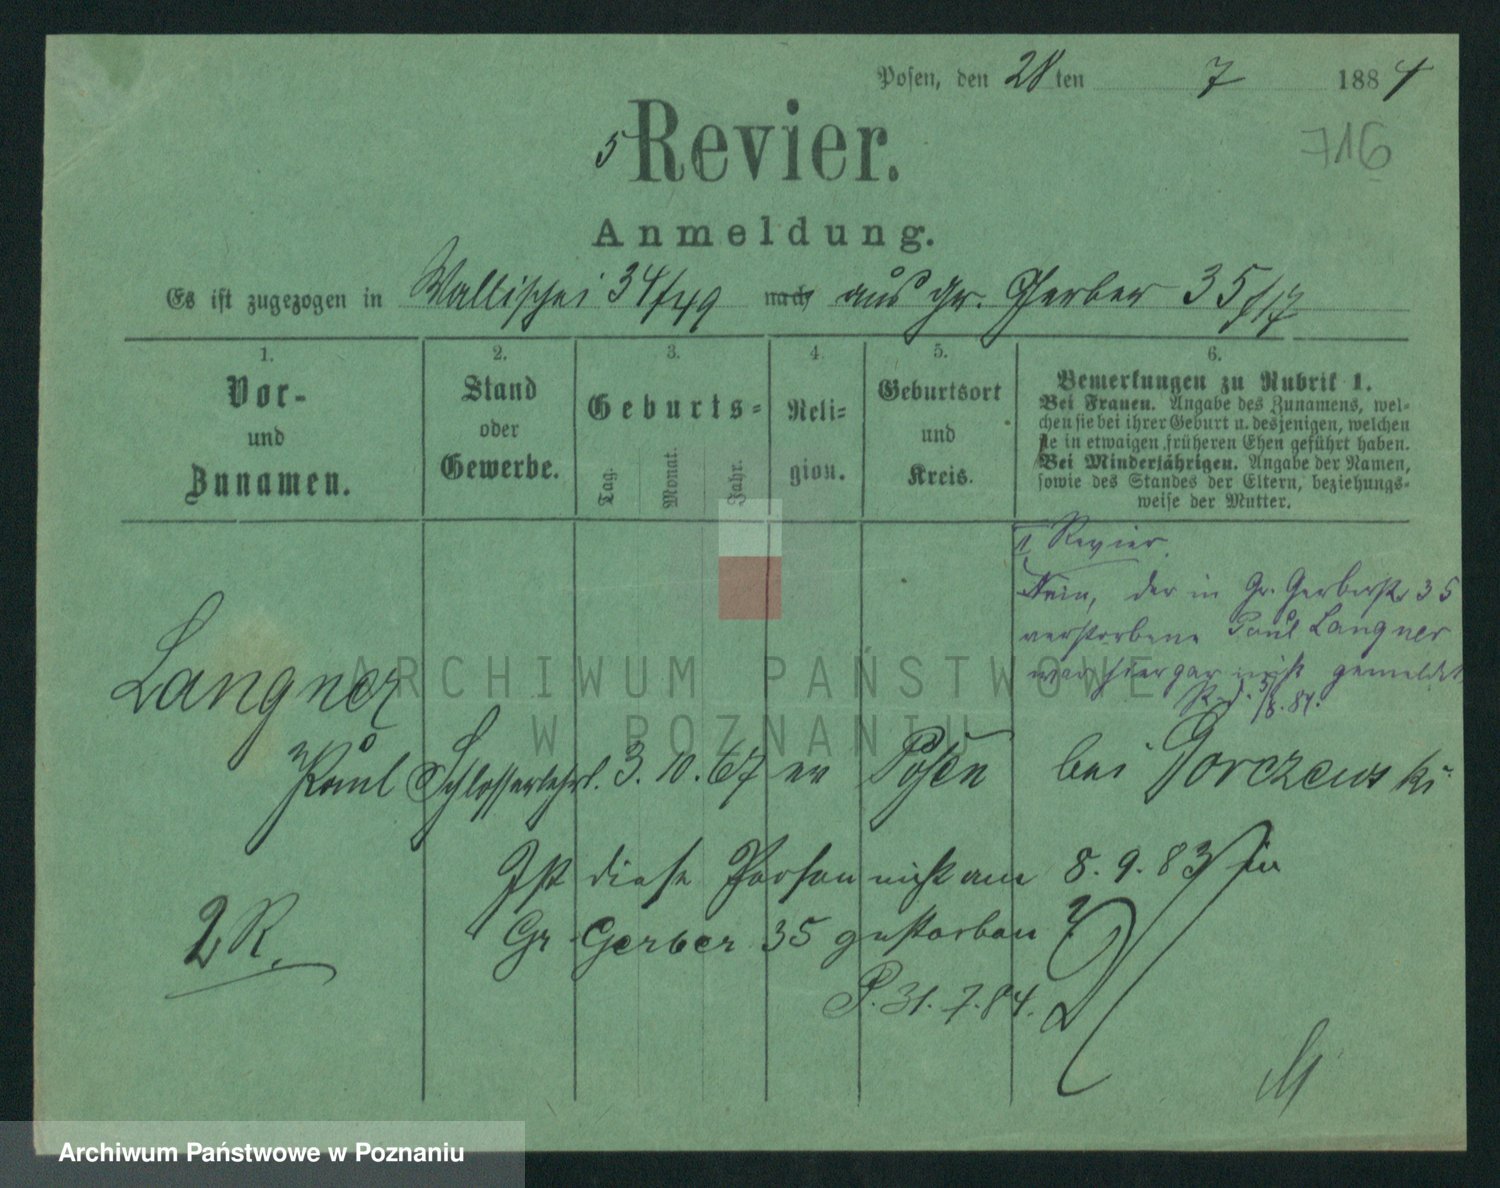 Posen, den 28ten 7 1884
716
5 Revier.
Anmeldung.
Es ist zugezogen in Wallischei 34/49 nach aus gr. Gerber 35/17
1. 2. 3. 4. 5. 6.
Vor-
und
Zunamen.
Stand
oder
Gewerbe.
Geburts=
Tag. Monat. Jahr.
Reli=
gion.
Geburtsort
und
Kreis.
Bemerkungen zu Rubrik 1.
Bei Frauen. Angabe des Zunamens, wel=
chen sie bei ihrer Geburt u. desjenigen, welchen
sie in etwaigen früheren Ehen geführt haben.
Bei Minderjährigen. Angabe der Namen,
sowie des Standes der Eltern, beziehungs=
weise der Mutter.
Revier.
Nein, der in Gr. Gerberstr 35
verstorbene Paul Langner
war hier gar nicht gemeldet
/8. 84.
Langner
Paul Schlosserlehrl. 3. 10. 67 ev Posen bei Gorczewski
Ist diese Person nicht am 8. 9. 83 in
Gr. Gerber 35 gestorben ?
2 R.
P. 31. 7. 84.
ARCHIWUM PAŃSTWOWE
W POZNANIU
Archiwum Państwowe w Poznaniu